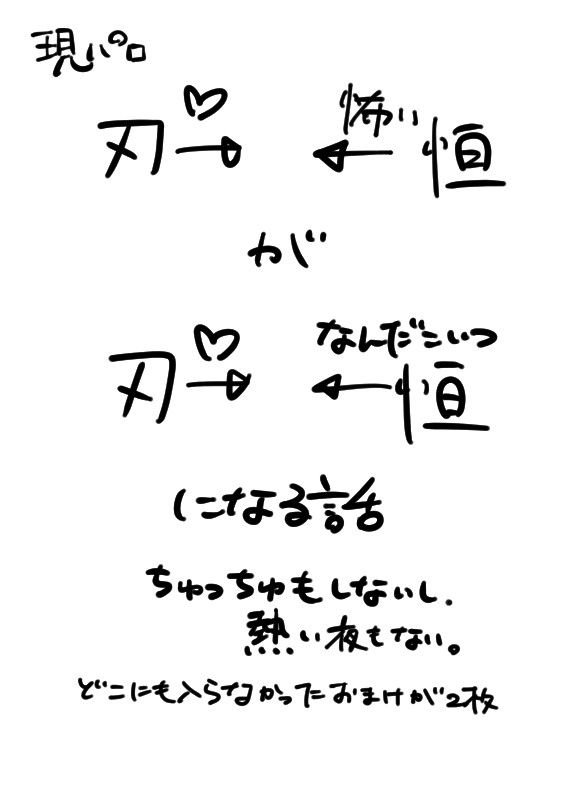 現パロ
刃 ♡→ ←怖い 恒
が
刃 ♡→ ←なんだこいつ 恒
になる話
ちゅっちゅもしないし、
熱い夜もない。
どこにも入らなかったおまけが2枚